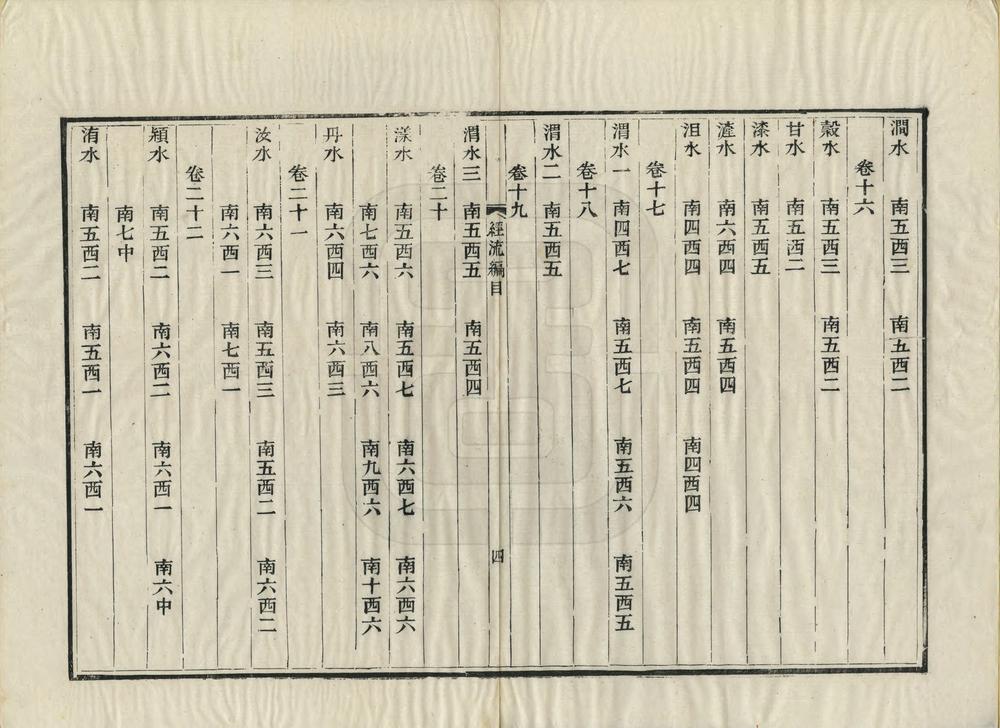 澗水 南五西三 南五西二
卷十六
穀水 南五西三 南五西二
甘水 南五西二
漆水 南五西五
滻水 南六西四 南五西四
沮水 南四西四 南五西四 南四西四
卷十七
渭水一 南四西七 南五西七 南五西六 南五西五
卷十八
渭水二 南五西五
卷十九
經流編目 四
渭水三 南五西五 南五西四
卷二十
漾水 南五西六 南五西七 南六西七 南六西六
南七西六 南八西六 南九西六 南十西六
丹水 南六西四 南六西三
卷二十一
汝水 南六西三 南五西三 南五西二 南六西二
南六西一 南七西一
卷二十二
潁水 南五西二 南六西二 南六西一 南六中
南七中
洧水 南五西二 南五西一 南六西一